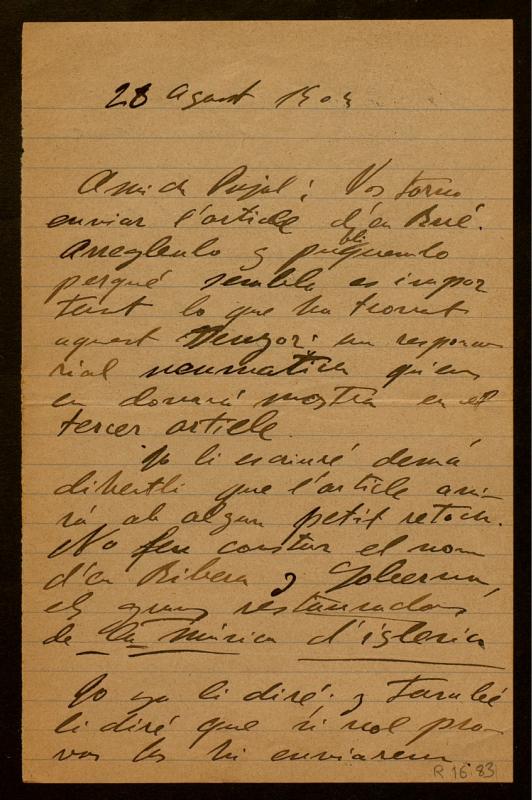 28 Agost 1903
Amich Pujol: Vos torno
enviar l'article d'en Rué.
Arreglenlo y publiquemlo
perqué sembla es impor
tant lo que ha trovat
aquest senyor: un responso
rial neumatica qu'ens
en donará mostra en el
tercer article.
Jo li escriuré demá
dihentli que l'article ani-
rá ab algun petit retoch.
No feu constar el nom
d'en Ribera y Goberna,
els grans restauradors
de la música d'iglesia
Jo ja li diré: y també
li diré que si vol pro-
vas las hi enviarem.
R. 16.83